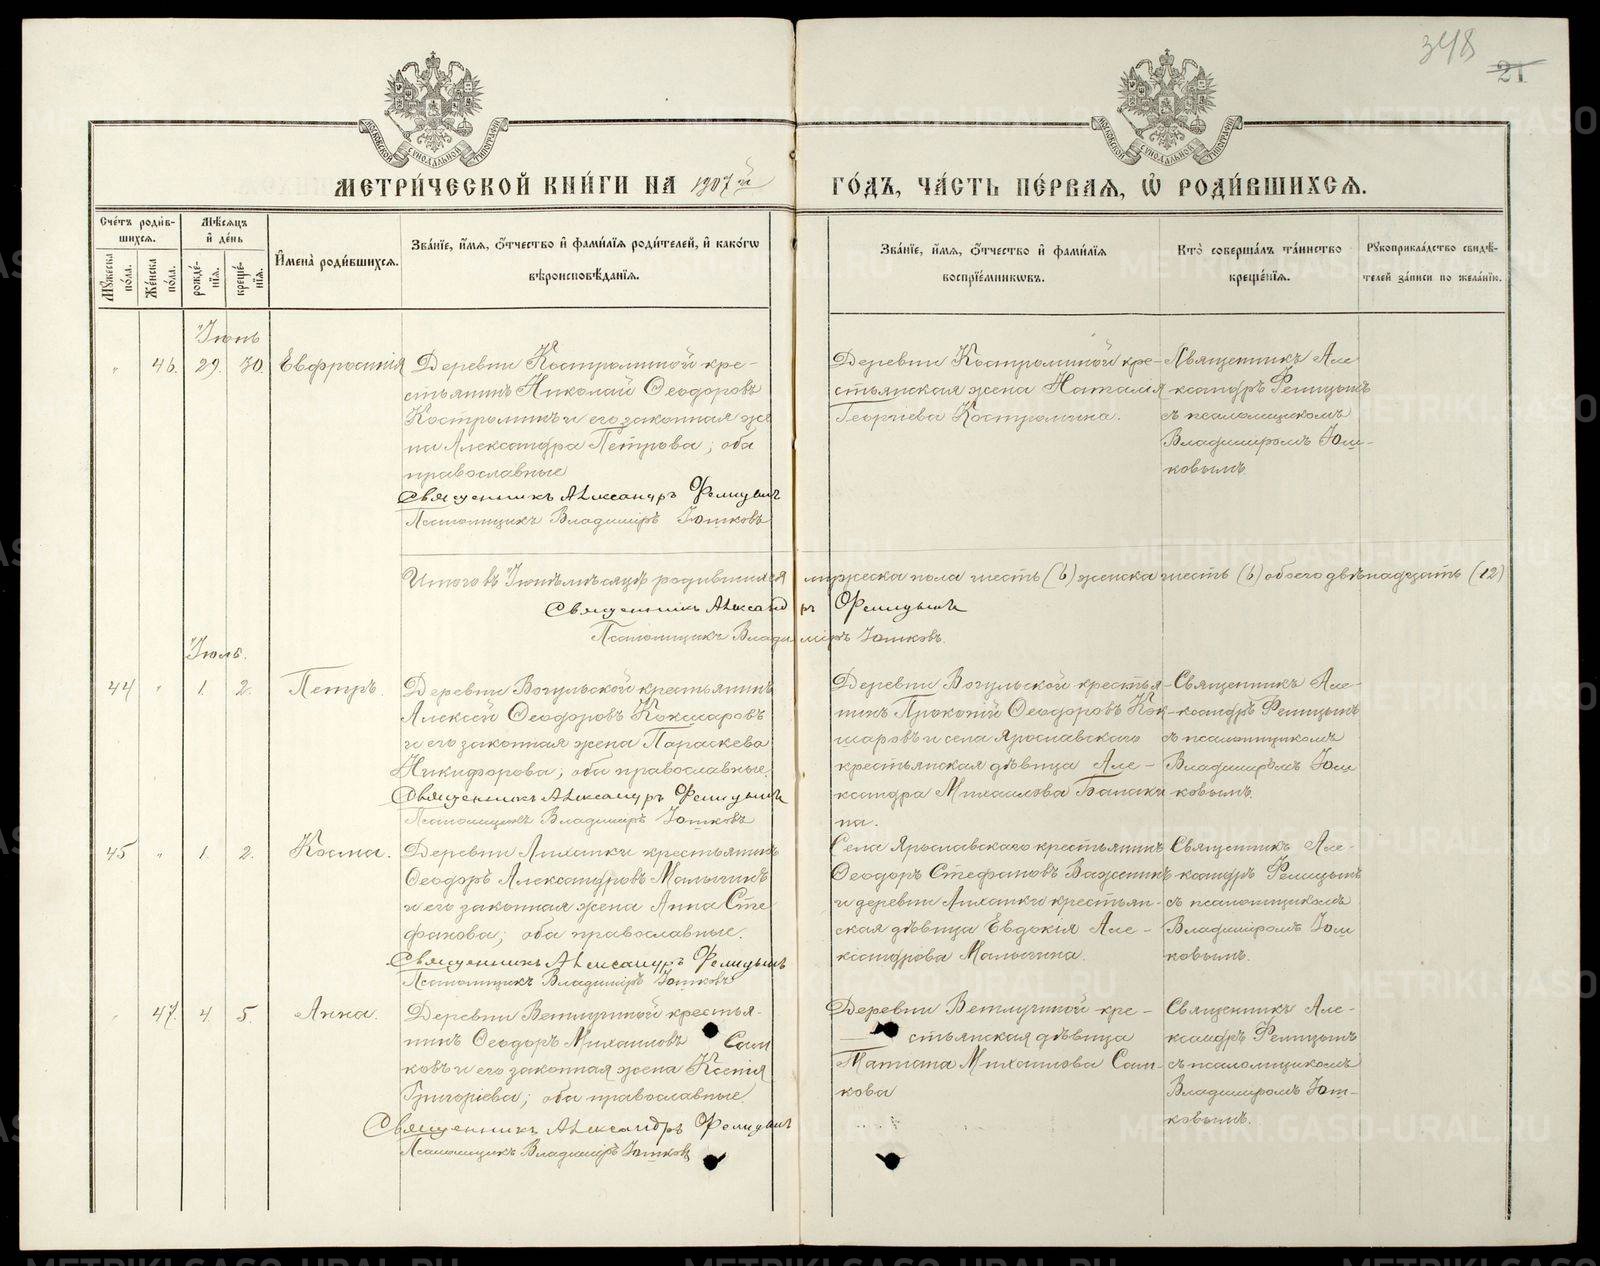 348
21
МОСКОВСКОЙ СѴНОДАЛЬНОЙ ТИПОГРАФІИ
МОСКОВСКОЙ СѴНОДАЛЬНОЙ ТИПОГРАФІИ
МЕТРИ́ЧЕСКОЙ КНИ́ГИ НА 1907й ГО́ДЪ, ЧА́СТЬ ПЕ́РВАЯ, Ѡ РОДИ́ВШИХСЯ.
Сче́тъ роди́в-
шихся.
Мꙋжеска по́ла.
Же́нска по́ла.
Мѣ́сяцъ
и҆ де́нь
рожде́-
нїя.
креще́-
нїя.
И҆мена̀ роди́вшихся.
Зва́нїе, и҆́мя, ѻ҆́тчество и҆ фами́лїя роди́телей, и҆ како́гѡ
вѣроисповѣ́данїя.
Зва́нїе, и҆́мя, ѻ҆́тчество и҆ фами́лїя
воспрїе́мникѡвъ.
Кто̀ соверша́лъ та́инство
креще́нїя.
Рꙋкоприкла́дство свидѣ́-
телей за́писи по жела́нїю.
Іюнь
" 46. 29. 30. Евфросинія
Деревни Костроминой кре-
стьянинъ Николай Ѳеодоровъ
Костроминъ и его законная же
на Александра Петрова; оба
православные
Священникъ Александръ Фелицынъ
Псаломщикъ Владиміръ Іошковъ
Деревни Костроминой кре-
стьянская жена Наталія
Георгіева Костромина.
Священникъ Але
ксандръ Фелицынъ
съ псаломщикомъ
Владиміромъ Іош-
ковымъ
Итого въ Іюнѣ мѣсяцѣ родившихся мужеска пола шесть (6) женска шесть (6) обоего двѣнадцать (12)
Священникъ Александръ Фелицынъ
Псаломщикъ Владиміръ Іошковъ.
Іюль.
44 " 1. 2. Петръ.
Деревни Вогульской крестьянинъ
Алексій Ѳеодоровъ Кокшаровъ
и его законная жена Параскева
Никифорова; оба православные.
Священникъ Александръ Фелицынъ
Псаломщикъ Владиміръ Іошковъ
Деревни Вогульской крестья-
нинъ Прокопій Ѳеодоровъ Кок-
шаровъ и села Ярославскаго
крестьянская дѣвица Але-
ксандра Михаилова Банаки
на.
Священникъ Але-
ксандръ Фелицынъ
съ псаломщикомъ
Владиміромъ Іош
ковымъ.
45 " 1. 2. Косма.
Деревни Лиханки крестьянинъ
Ѳеодоръ Александровъ Малыгинъ
и его законная жена Анна Сте
фанова; оба православные.
Священникъ Александръ Фелицынъ
Псаломщикъ Владиміръ Іошковъ
Села Ярославскаго крестьянинъ
Ѳеодоръ Стефановъ Важенинъ
и деревни Лиханки крестьян-
ская дѣвица Евдокія Але-
ксандрова Малыгина.
Священникъ Але-
ксандръ Фелицынъ
съ псаломщикомъ
Владиміромъ Іош
ковымъ.
" 47. 4. 5. Анна.
Деревни Ветлугиной крестья-
нинъ Ѳеодоръ Михаиловъ Сош
ковъ и его законная жена Ксенія
Григоріева; оба православные.
Священникъ Александръ Фелицынъ
Псаломщикъ Владиміръ Іошковъ
Деревни Ветлугиной кре-
стьянская дѣвица
Татіана Михаилова Сош-
кова
Священникъ Але-
ксандръ Фелицынъ
съ псаломщикомъ
Владиміромъ Іош-
ковымъ.
METRIKI.GASO-URAL.RU